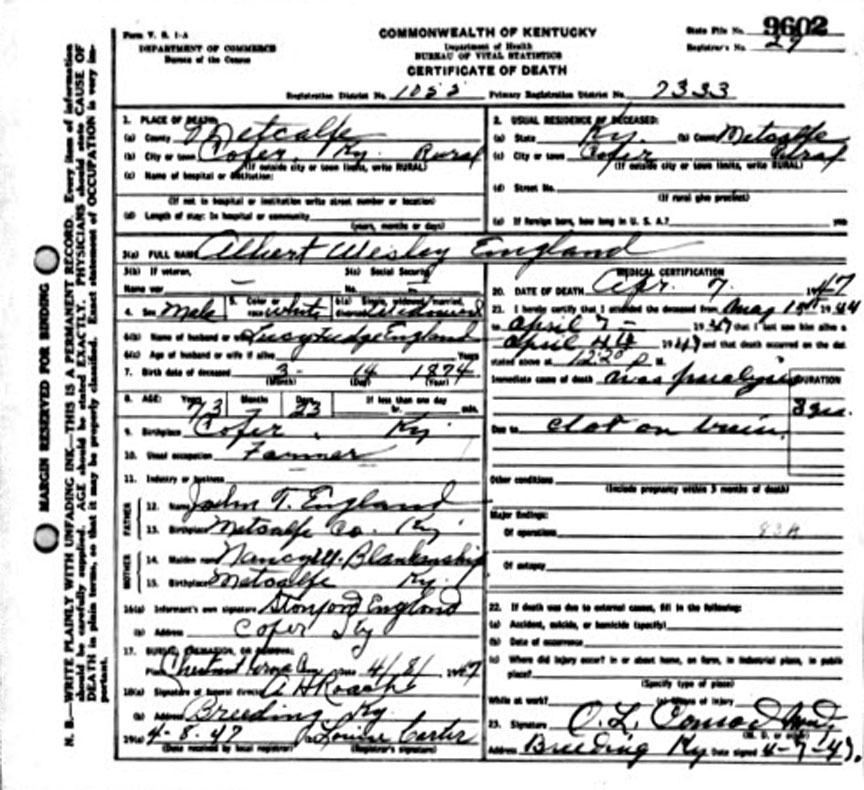 Form V. S. 1-A
DEPARTMENT OF COMMERCE
Bureau of the Census
COMMONWEALTH OF KENTUCKY
Department of Health
BUREAU OF VITAL STATISTICS
CERTIFICATE OF DEATH
State File No. 9602
Registrar's No. 29
Registration District No. 1055 Primary Registration District No. 7333
MARGIN RESERVED FOR BINDING
N. B.—WRITE PLAINLY WITH UNFADING INK—THIS IS A PERMANENT RECORD. Every item of information
should be carefully supplied. AGE should be stated EXACTLY. PHYSICIANS should state CAUSE OF
DEATH in plain terms, so that it may be properly classified. Exact statement of OCCUPATION is very im-
portant.
1. PLACE OF DEATH:
(a) County Metcalfe
(b) City or town Cofer, Ky. Rural
(If outside city or town limits, write RURAL)
(c) Name of hospital or institution:
(If not in hospital or institution write street number or location)
(d) Length of stay: In hospital or community
(years, months or days)
2. USUAL RESIDENCE OF DECEASED:
(a) State Ky. (b) County Metcalfe
(c) City or town Cofer Rural
(If outside city or town limits, write RURAL)
(d) Street No.
(If rural give precinct)
(e) If foreign born, how long in U. S. A.?
3(a) FULL NAME Albert Wesley England
3(b) If veteran,
Name war —
3(c) Social Security
No. —
4. Sex Male 5. Color or race white 6(a) Single, widowed, married, divorced Widowed
6(b) Name of husband or wife Lucy England
6(c) Age of husband or wife if alive Years
7. Birth date of deceased 3- 14 1874
(Month) (Day) (Year)
8. AGE: Years 73 Months Days 23 If less than one day
hr. min.
9. Birthplace Cofer, Ky.
10. Usual occupation Farmer
11. Industry or business
FATHER
12. Name John T. England
13. Birthplace Metcalfe Co. Ky.
MOTHER
14. Maiden name Nancy M. Blankenship
15. Birthplace Metcalfe Ky.
16(a) Informant's own signature Stanford England
(b) Address Cofer Ky
17. BURIAL, CREMATION, OR REMOVAL
Place Chestnut Date 4/8/1947
18(a) Signature of funeral director A H Roach
(b) Address Breeding, Ky.
19(a) 4-8-47 Louise Carter
(Date received by local registrar) (Registrar's signature)
MEDICAL CERTIFICATION
20. DATE OF DEATH Apr. 7. 1947
21. I hereby certify that I attended the deceased from May 1944
to April 7- 1947 that I last saw him alive on
April 4th 1947 and that death occurred on the date
stated above at 12:20 P M.
Immediate cause of death was paralysis
DURATION
3 yrs.
Due to clot on brain.
Other conditions
(Include pregnancy within 3 months of death)
Major findings:
Of operations 83A
Of autopsy
22. If death was due to external causes, fill in the following:
(a) Accident, suicide, or homicide (specify)
(b) Date of occurrence
(c) Where did injury occur? in or about home, on farm, in industrial place, in public
place?
(Specify type of place)
While at work? (e) Means of injury
23. Signature O. L. Conrad
Address Breeding Ky Date signed 4-7-47.